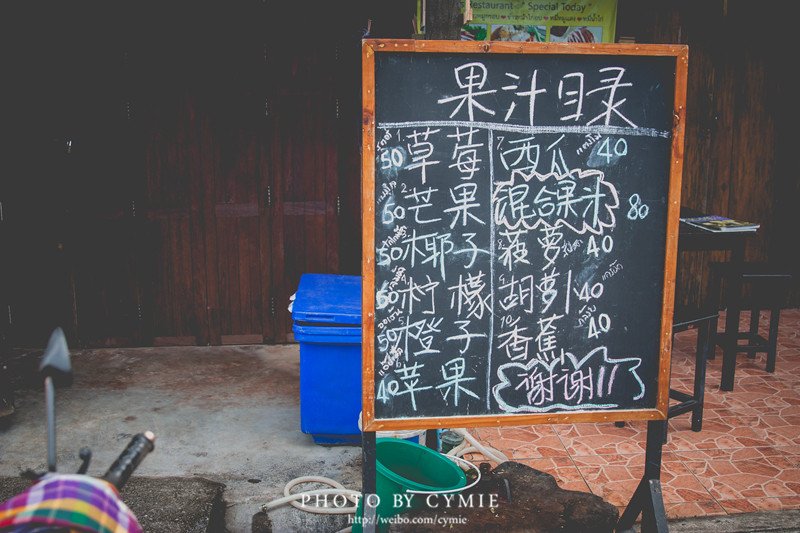 Restaurant Special Today
果汁目录
50 草莓
60 芒果
50 椰子
60 柠檬
50 橙子
40 苹果
西瓜 40
混合果汁 80
菠萝 40
胡萝卜 40
香蕉 40
谢谢!!
PHOTO BY CYMIE
http://weibo.com/cymie